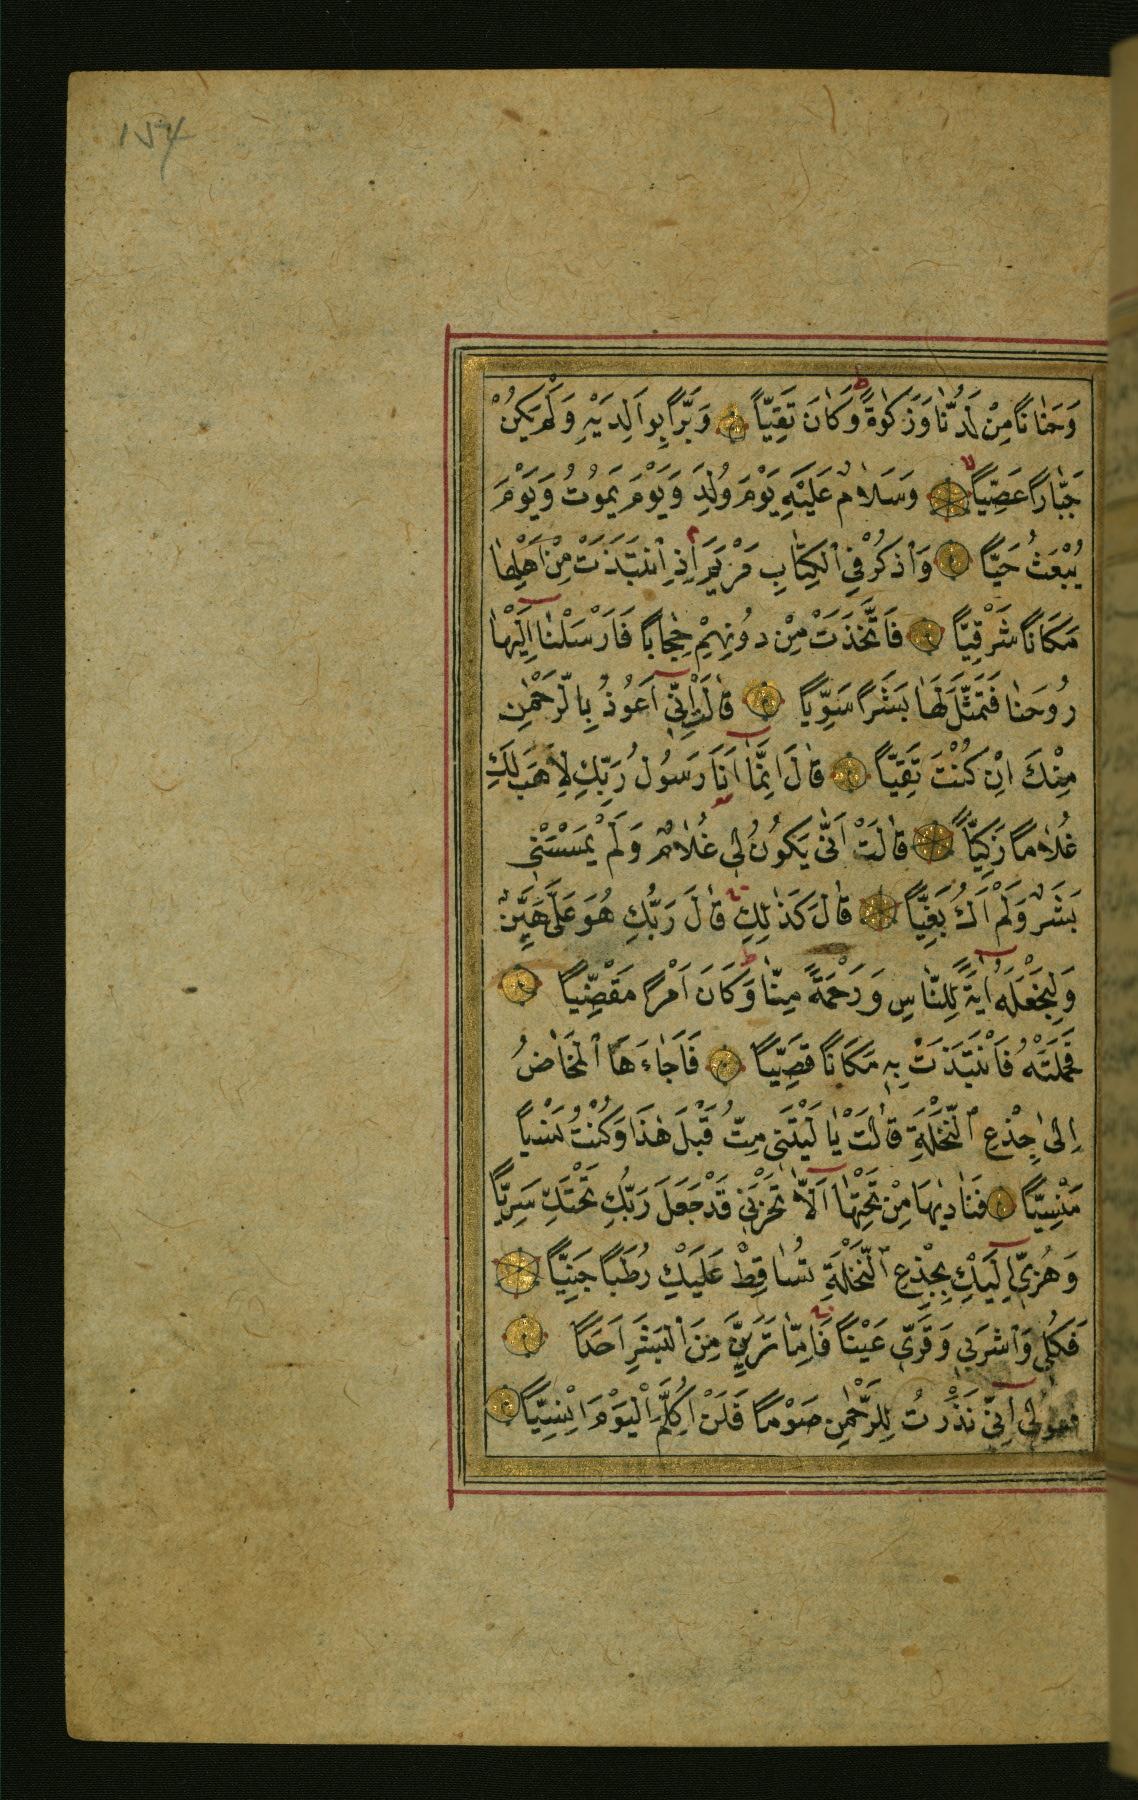 154
وَحَنَانًا مِنْ لَدُنَّا وَزَكٰوةً وَكَانَ تَقِيًّا وَبَرًّا بِوَالِدَيْهِ وَلَمْ يَكُنْ
جَبَّارًا عَصِيًّا وَسَلَامٌ عَلَيْهِ يَوْمَ وُلِدَ وَيَوْمَ يَمُوتُ وَيَوْمَ
يُبْعَثُ حَيًّا وَاذْكُرْ فِي الْكِتَابِ مَرْيَمَ إِذِ انْتَبَذَتْ مِنْ أَهْلِهَا
مَكَانًا شَرْقِيًّا فَاتَّخَذَتْ مِنْ دُونِهِمْ حِجَابًا فَأَرْسَلْنَا إِلَيْهَا
رُوحَنَا فَتَمَثَّلَ لَهَا بَشَرًا سَوِيًّا قَالَتْ إِنِّي أَعُوذُ بِالرَّحْمٰنِ
مِنْكَ إِنْ كُنْتَ تَقِيًّا قَالَ إِنَّمَا أَنَا رَسُولُ رَبِّكِ لِأَهَبَ لَكِ
غُلَامًا زَكِيًّا قَالَتْ أَنّٰى يَكُونُ لِي غُلَامٌ وَلَمْ يَمْسَسْنِي
بَشَرٌ وَلَمْ أَكُ بَغِيًّا قَالَ كَذٰلِكِ قَالَ رَبُّكِ هُوَ عَلَيَّ هَيِّنٌ
وَلِنَجْعَلَهُ آيَةً لِلنَّاسِ وَرَحْمَةً مِنَّا وَكَانَ أَمْرًا مَقْضِيًّا
فَحَمَلَتْهُ فَانْتَبَذَتْ بِهِ مَكَانًا قَصِيًّا فَأَجَاءَهَا الْمَخَاضُ
إِلٰى جِذْعِ النَّخْلَةِ قَالَتْ يَا لَيْتَنِي مِتُّ قَبْلَ هٰذَا وَكُنْتُ نَسْيًا
مَنْسِيًّا فَنَادٰيهَا مِنْ تَحْتِهَا أَلَّا تَحْزَنِي قَدْ جَعَلَ رَبُّكِ تَحْتَكِ سَرِيًّا
وَهُزِّي إِلَيْكِ بِجِذْعِ النَّخْلَةِ تُسَاقِطْ عَلَيْكِ رُطَبًا جَنِيًّا
فَكُلِي وَاشْرَبِي وَقَرِّي عَيْنًا فَإِمَّا تَرَيِنَّ مِنَ الْبَشَرِ أَحَدًا
فَقُولِي إِنِّي نَذَرْتُ لِلرَّحْمٰنِ صَوْمًا فَلَنْ أُكَلِّمَ الْيَوْمَ إِنْسِيًّا